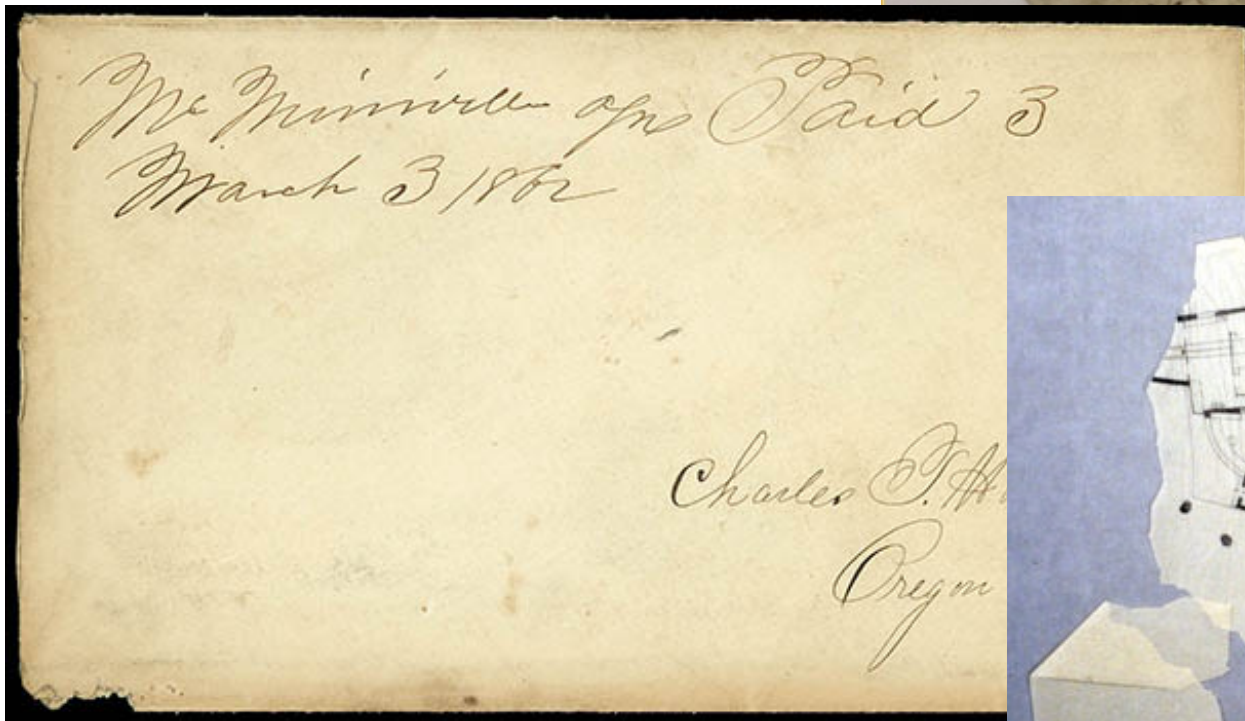 Mc Minnville ogn Paid 3
March 3 1862
Charles F. H
Oregon